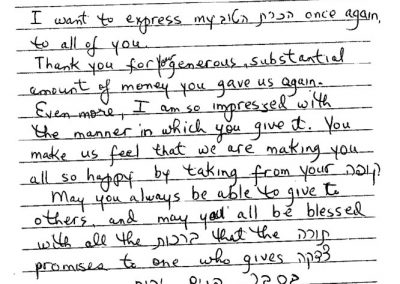 I want to express my הכרת הטוב once again,
to all of you.
Thank you for your generous, substantial
amount of money you gave us again.
Even more, I am so impressed with
the manner in which you give it. You
make us feel that we are making you
all so happy by taking from your קופה
May you always be able to give to
others, and may you all be blessed
with all the ברכות that the
תורה promises to one who gives צדקה